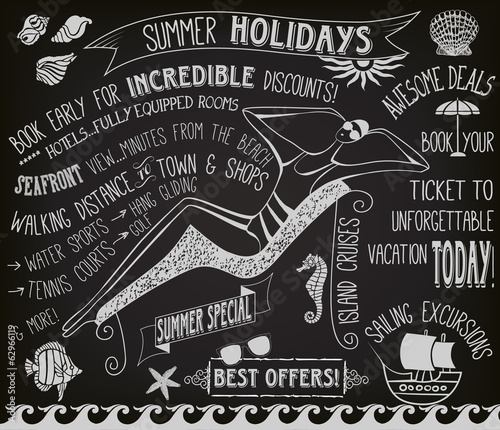 SUMMER HOLIDAYS
BOOK EARLY FOR INCREDIBLE DISCOUNTS!
***** HOTELS...FULLY EQUIPPED ROOMS
SEAFRONT VIEW...MINUTES FROM THE BEACH
WALKING DISTANCE TO TOWN & SHOPS
→ WATER SPORTS → HANG GLIDING
→ TENNIS COURTS → GOLF
& MORE!
AWESOME DEALS
BOOK YOUR
TICKET TO
UNFORGETTABLE
VACATION TODAY!
ISLAND CRUISES
SAILING EXCURSIONS
SUMMER SPECIAL
BEST OFFERS!
62966119